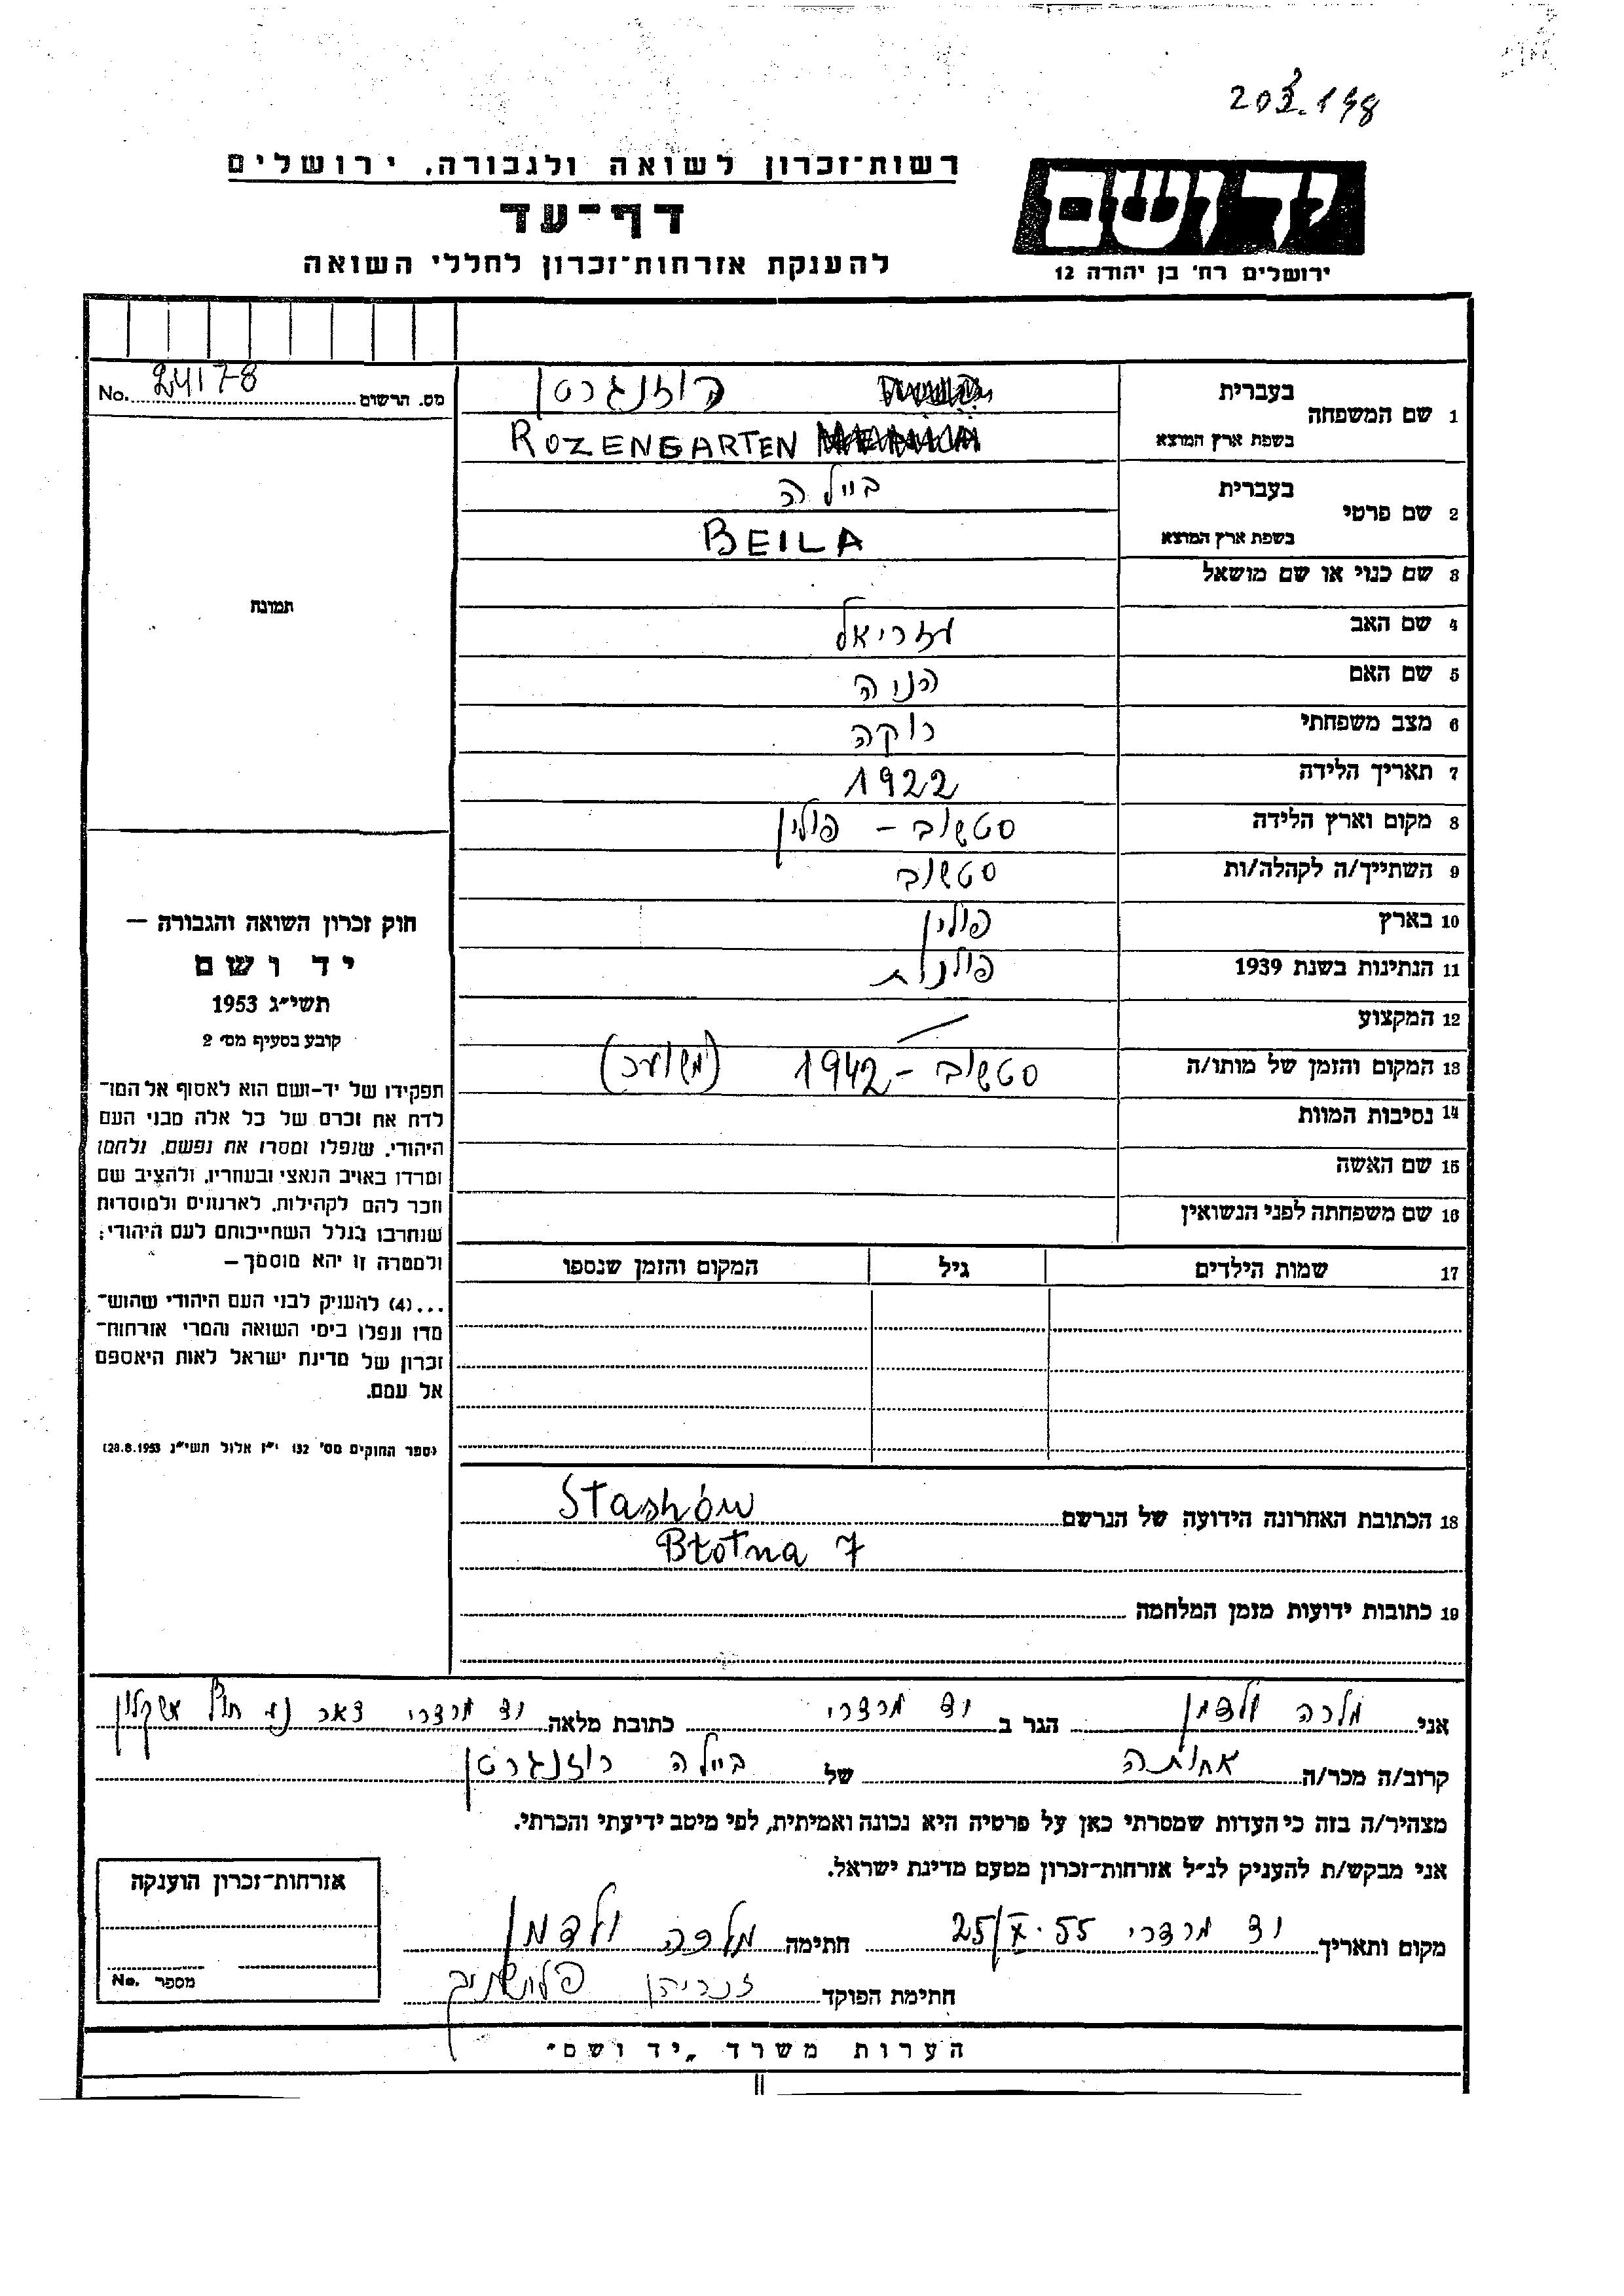 203.178
רשות-זכרון לשואה ולגבורה, ירושלים
דף-עד
להענקת אזרחות-זכרון לחללי השואה
יד ושם
ירושלים רח' בן יהודה 12
מס. הרשום 24178 No.
1 שם המשפחה
בעברית רוזנגרטן
בשפת ארץ המוצא ROZENGARTEN
2 שם פרטי
בעברית ביילה
בשפת ארץ המוצא BEILA
3 שם כנוי או שם מושאל
4 שם האב עזריאל
5 שם האם
6 מצב משפחתי רוקה
7 תאריך הלידה 1922
8 מקום וארץ הלידה סטשוב – פולין
9 השתייך/ה לקהלה/ות סטשוב
10 בארץ פולין
11 הנתינות בשנת 1939 פולנית
12 המקצוע —
13 המקום והזמן של מותו/ה סטשוב – 1942 (משוער)
14 נסיבות המוות
15 שם האשה
16 שם משפחתה לפני הנשואין
17 שמות הילדים גיל המקום והזמן שנספו
18 הכתובת האחרונה הידועה של הנרשם Stashów
Błotna 7
19 כתובות ידועות מזמן המלחמה
תמונה
חוק זכרון השואה והגבורה –
יד ושם
תשי"ג 1953
קובע בסעיף מס' 2
תפקידו של יד-ושם הוא לאסוף אל המו-
לדת את זכרם של כל אלה מבני העם
היהודי, שנפלו ומסרו את נפשם, נלחמו
ומרדו באויב הנאצי ובעוזריו, ולהציב שם
וזכר להם לקהילות, לארגונים ולמוסדות
שנחרבו בגלל השתייכותם לעם היהודי;
ולמטרה זו יהא מוסמך –
...(4) להעניק לבני העם היהודי שהוש-
מדו ונפלו בימי השואה והמרי אזרחות-
זכרון של מדינת ישראל לאות היאספם
אל עמם.
(ספר החוקים מס' 132 י"ז אלול תשי"ג 28.8.1953)
אני מלכה ולדמן הגר ב וד מרדכי כתובת מלאה וד מרדכי דאר נע חוף אשקלון
קרוב/ה מכר/ה אחותה של ביילה רוזנגרטן
מצהיר/ה בזה כי העדות שמסרתי כאן על פרטיה היא נכונה ואמיתית, לפי מיטב ידיעתי והכרתי.
אני מבקש/ת להעניק לנ"ל אזרחות-זכרון מטעם מדינת ישראל.
מקום ותאריך וד מרדכי 25/X.55 חתימה מלכה ולדמן
חתימת הפוקד
אזרחות-זכרון הוענקה
מספר No.
הערות משרד "יד ושם"